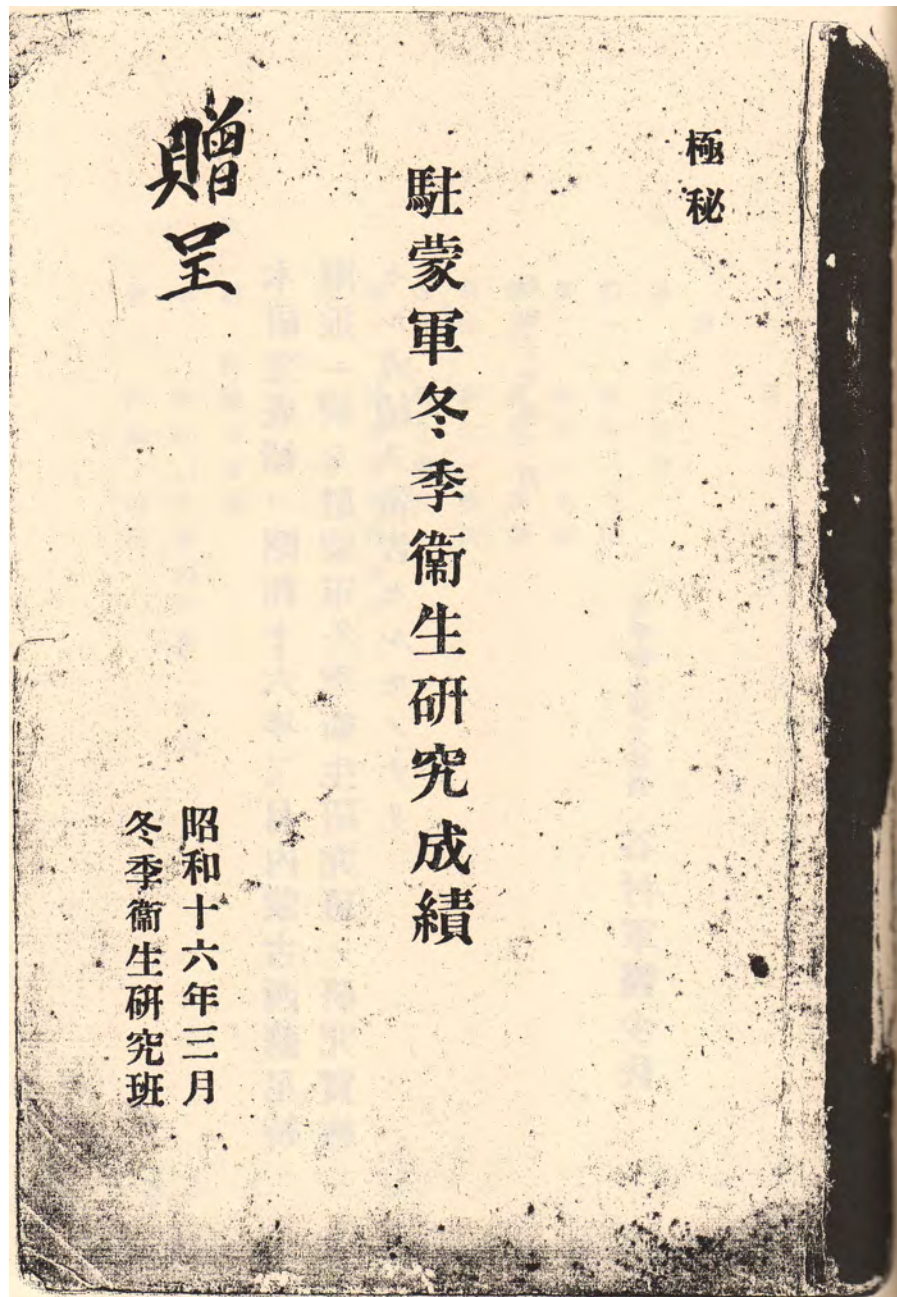 極秘
駐蒙軍冬季衞生研究成績
昭和十六年三月
冬季衞生研究班
贈呈